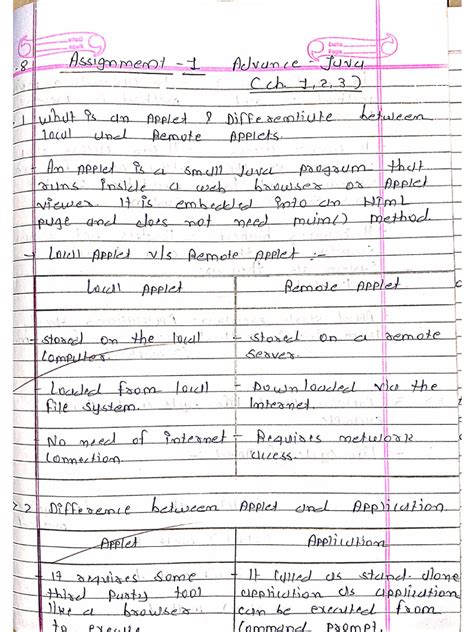 Assignment - 1 Advance Java
(Ch. 1,2,3)
1 What is an Applet? Differentiate between
local and Remote Applets.
- An Applet is a small Java program that
runs inside a web browser or Applet
viewer. It is embedded into an HTML
page and does not need main() method
→ Local Applet v/s Remote Applet :-
Local Applet Remote Applet
- stored on the local - stored on a remote
Computer. server.
- Loaded from local - Downloaded via the
file system. Internet.
- No need of internet - Requires network
Connection. access.
2 Difference between Applet and Application.
Applet Application
- It requires some - It called as stand-alone
third party tool application as application
like a browser can be executed from
to execute command prompt.